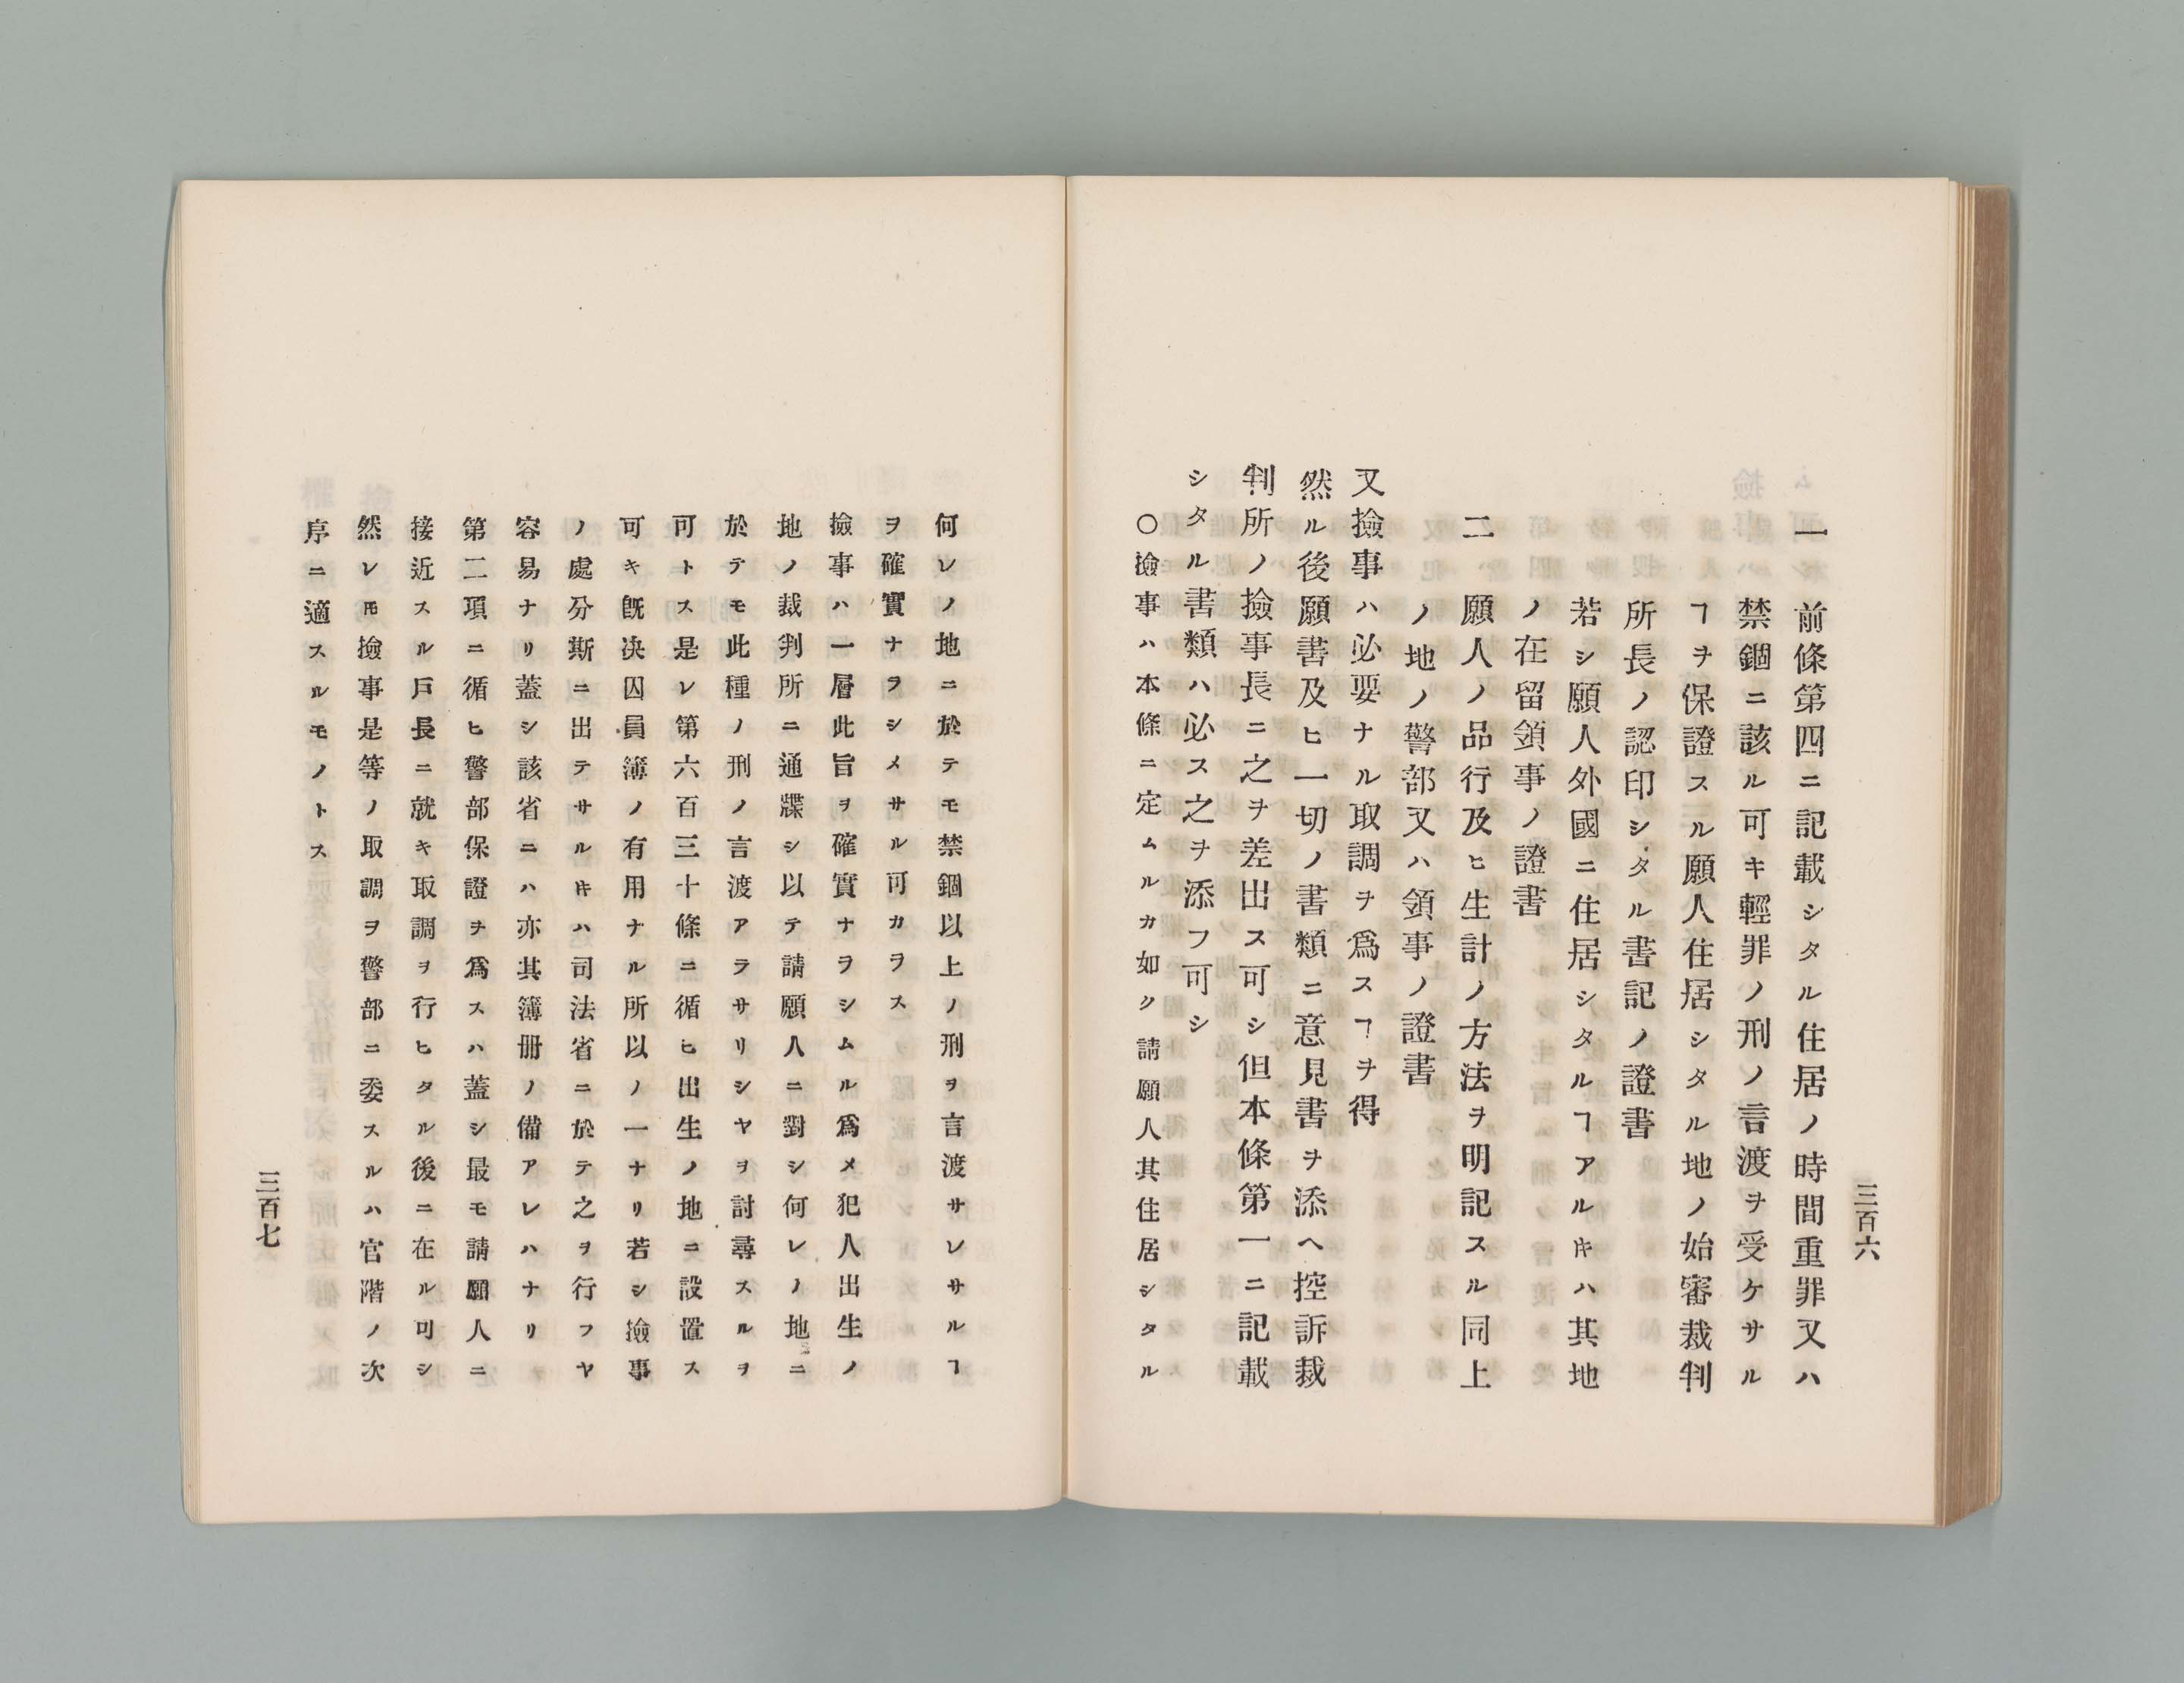 三百六
一 前條第四ニ記載シタル住居ノ時間重罪又ハ
禁錮ニ該ル可キ輕罪ノ刑ノ言渡ヲ受ケサル
ヿヲ保證スル願人住居シタル地ノ始審裁判
所長ノ認印シタル書記ノ證書
若シ願人外國ニ住居シタルヿアルキハ其地
ノ在留領事ノ證書
二 願人ノ品行及ヒ生計ノ方法ヲ明記スル同上
ノ地ノ警部又ハ領事ノ證書
又撿事ハ必要ナル取調ヲ爲スヿヲ得
然ル後願書及ヒ一切ノ書類ニ意見書ヲ添ヘ控訴裁
判所ノ撿事長ニ之ヲ差出ス可シ但本條第一ニ記載
シタル書類ハ必ス之ヲ添フ可シ
〇撿事ハ本條ニ定ムルカ如ク請願人其住居シタル
何レノ地ニ於テモ禁錮以上ノ刑ヲ言渡サレサルヿ
ヲ確實ナラシメサル可カラス
撿事ハ一層此旨ヲ確實ナラシムル爲メ犯人出生ノ
地ノ裁判所ニ通牒シ以テ請願人ニ對シ何レノ地ニ
於テモ此種ノ刑ノ言渡アラサリシヤヲ討尋スルヲ
可トス是レ第六百三十條ニ循ヒ出生ノ地ニ設置ス
可キ旣決囚員簿ノ有用ナル所以ノ一ナリ若シ撿事
ノ處分斯ニ出テサルキハ司法省ニ於テ之ヲ行フヤ
容易ナリ蓋シ該省ニハ亦其簿册ノ備アレハナリ
第二項ニ循ヒ警部保證ヲ爲スハ蓋シ最モ請願人ニ
接近スル戸長ニ就キ取調ヲ行ヒタル後ニ在ル可シ
然レ𪜈撿事是等ノ取調ヲ警部ニ委スルハ官階ノ次
序ニ適スルモノトス
三百七